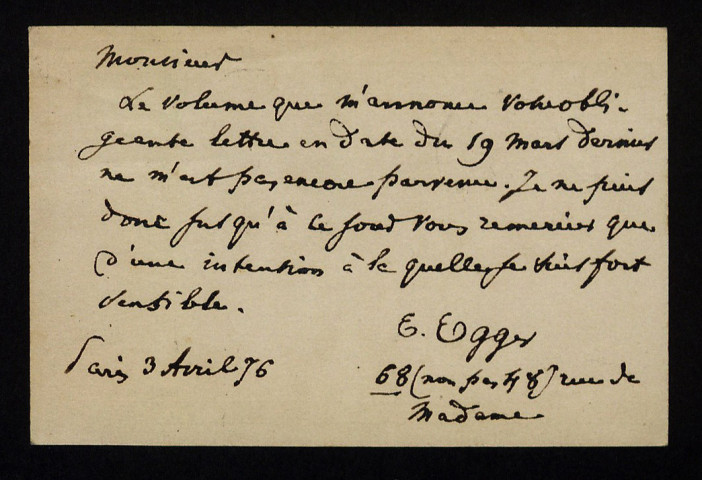 Monsieur
Le volume que m'annonce votre obli-
geante lettre en date du 19 Mars dernier
ne m'est pas encore parvenu. Je ne puis
donc jusqu'à ce jour vous remercier que
d'une intention à la quelle je suis fort
sensible.
E. Egger
Paris 3 Avril 76
68 (non pas 48) rue de
Madame